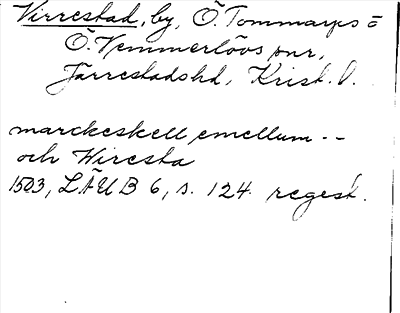 Virrestad, by, Ö. Tommarps o
Ö. Vemmerlövs snr,
Järrestads hd, Krist. l.
marckeskell emellum - -
och Wiresta
1503, LÄUB 6, s. 124. regest.